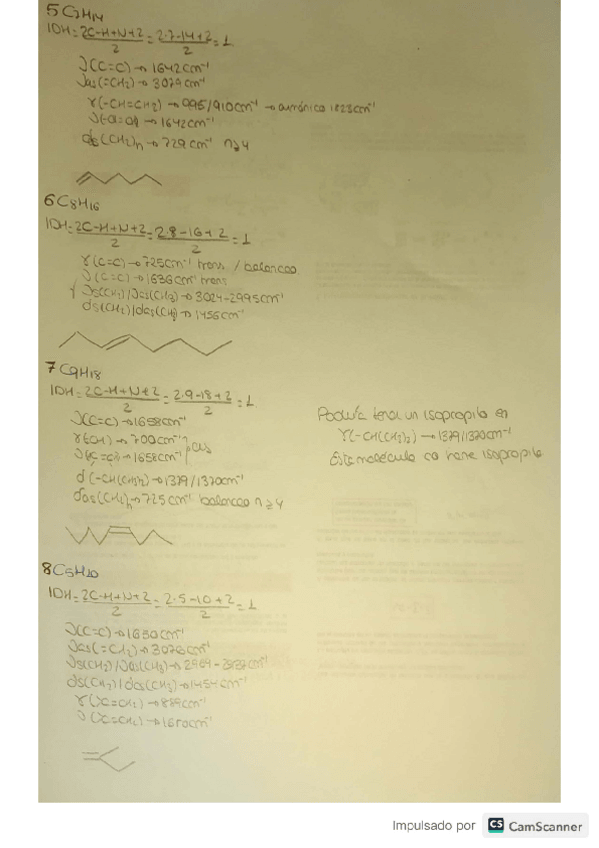 5 C7H14
IDH = 2C-H+N+2/2 = 2·7-14+2/2 = 1
ν(C=C) → 1642cm⁻¹
νas(=CH2) → 3079cm⁻¹
γ(-CH=CH2) → 995/910cm⁻¹ → armónico 1823cm⁻¹
→ 1642cm⁻¹
(CH2)n → 729cm⁻¹ n≥4
6 C8H16
IDH = 2C-H+N+2/2 = 2·8-16+2/2 = 1
γ(C=C) → 725cm⁻¹ trans / balanceo
ν(C=C) → 1636cm⁻¹ trans
νs(CH2)/νas(CH3) → 3024-2995cm⁻¹
ds(CH2)/das(CH3) → 1456cm⁻¹
7 C9H18
IDH = 2C-H+N+2/2 = 2·9-18+2/2 = 1
ν(C=C) → 1658cm⁻¹
→ 700cm⁻¹
ν(C=C) → 1658cm⁻¹ cis
→ 1379/1370cm⁻¹
das(CH2)n → 725cm⁻¹ balanceo n≥4
Podría tener un isopropilo en
γ(-CH(CH3)2) → 1379/1370cm⁻¹
Esta molécula no tiene isopropilo
8 C5H10
IDH = 2C-H+N+2/2 = 2·5-10+2/2 = 1
ν(C=C) → 1650cm⁻¹
νas(=CH2) → 3076cm⁻¹
νs(CH2)/νas(CH3) → 2969-cm⁻¹
ds(CH2)/das(CH3) → 1454cm⁻¹
γ(>C=CH2) → 889cm⁻¹
ν(>C=CH2) → cm⁻¹
Impulsado por CS CamScanner